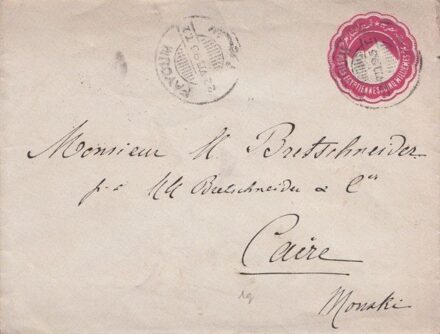 FAYOUM
22 VI 95
EGYPTIENNES CINQ MILLIEMES
Monsieur M Bretschneider
p. a MM Bretschneider & Cie
Caire
Mouski